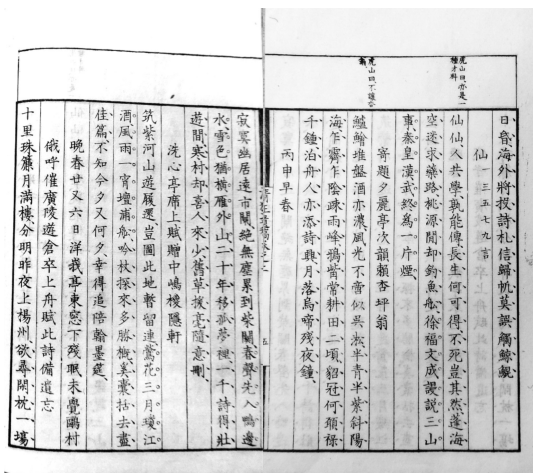 虎山曰亦是一
種才料
虎山曰不讓杏
翁
日音海外將投詩札信歸帆莫誤觸鯨鯢
仙 一三五七九言
仙仙人共學孰能傳長生何可得不死豈其然蓬海
空迷求藥路桃源閒却釣魚船徐福文成謾說三山
事秦皇漢武終為一片煙
寄題夕麗亭次韻賴杏坪翁
鱸鱠堆盤酒亦濃風光不啻似吳淞半青半紫斜陽
海乍霽乍陰疎雨峰鴉觜常耕田二頃貂冠何顧祿
千鍾泊舟人亦添詩興月落烏啼殘夜鐘
丙申早春
五
寂寞幽居遠市闤絕無塵累到柴關春聲先入鴨邊
水雪色猶橫雁外山二十年移孤夢裡一千詩得壯
遊間寒村却喜人來少舊草援毫隨意刪
洗心亭席上賦贈中嶋椶隱軒
筑紫河山遊履還豈圖此地暫留連鶯花三月瓊江
酒風雨一宵壇浦船吟杖探來多勝概奚囊括去盡
佳篇不知今夕又何夕幸得追陪翰墨筵
晚春廿又六日洋我亭東窓下殘眠未覺鷗村
俄呼催廣陵遊倉卒上舟賦此詩備遺忘
十里珠簾月滿樓分明昨夜上楊州欲尋閑枕一場